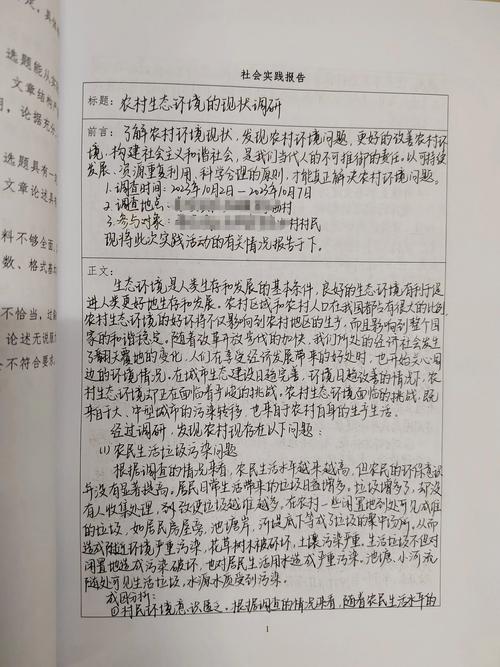 选题能从实
文章结构
，论据充分
选题具有一
文章论述具
料不够全面，
数、格式基本
不恰当，过
论述无说服
不符合要求
社会实践报告
标题：农村生态环境的现状调研
前言：了解农村环境现状，发现农村环境问题，更好的改善农村环
境，构建社会主义和谐社会，是我们当代人的不可推卸的责任。以可持续
发展、资源重复利用、科学合理的原则，才能真正解决农村环境问题。
1.调查时间：2023年10月2日-2023年10月7日
2.调查地点：西村
3.参与对象：村村民
现将此次实践活动的有关情况报告于下。
正文：
生态环境是人类生存和发展的基本条件，良好的生态环境有利于促
进人类更好地生存和发展。农村区域和农村人口在我国都占有很大的比例
农村生态环境的好坏将不仅影响到农村地区的生产，而且影响到整个国
家的和谐稳定。随着改革开放步伐的加快，我们所处的经济社会发生
了翻天覆地的变化，人们在享受经济发展带来的好处时，也开始关心周
边的环境情况。在城市生态建设日趋完善，环境日趋改善的情况下，农
村生态环境却正在面临着严峻的挑战。农村生态环境面临的挑战，既
来自于大、中型城市的污染转移，也来自于农村自身的生产生活。
经过调研，发现农村现存在以下问题：
(1)农民生活垃圾污染问题
根据调查的情况来看，农民生活水平越来越高，但农民的环保意识
并没有显著提高。居民日常生活带来的垃圾日益增多，垃圾增多了，却没
有人收集处理，到处使垃圾越堆越多，在农村一些闲置地到处可见成堆
的垃圾，如居民房屋旁，池塘片，河堤底下等成了垃圾的集中场所。从而
造成附近环境严重污染，花草树木被破坏，土壤污染严重。生活垃圾不但对
闲置地造成污染破坏，也对居民生活用水造成严重污染。池塘、小河流
随处可见生活垃圾，水源水质受到污染。
成因分析：
①村民环境意识匮乏。根据调查的情况来看，随着农民生活水平的
1